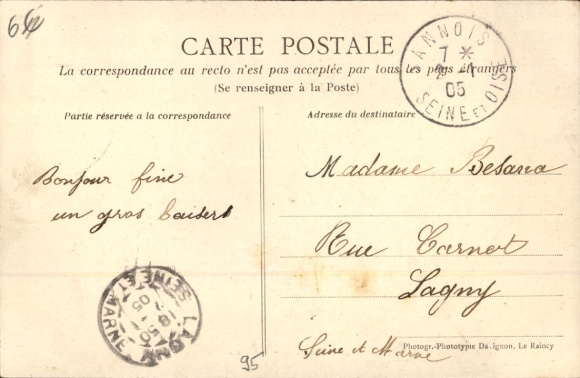 64
CARTE POSTALE
La correspondance au recto n'est pas acceptée par tous les pays étrangers
(Se renseigner à la Poste)
ANNOIS
7 *
2 - 1
05
SEINE ET OISE
Partie réservée a la correspondance
Adresse du destinataire
Bonjour fine
un gros baisers
Madame Besana
Rue Carnot
Lagny
Seine et Marne
LAGNY
18 50
2
05
SEINE ET MARNE
95
Photogr.-Phototypie Da.ignon, Le Raincy